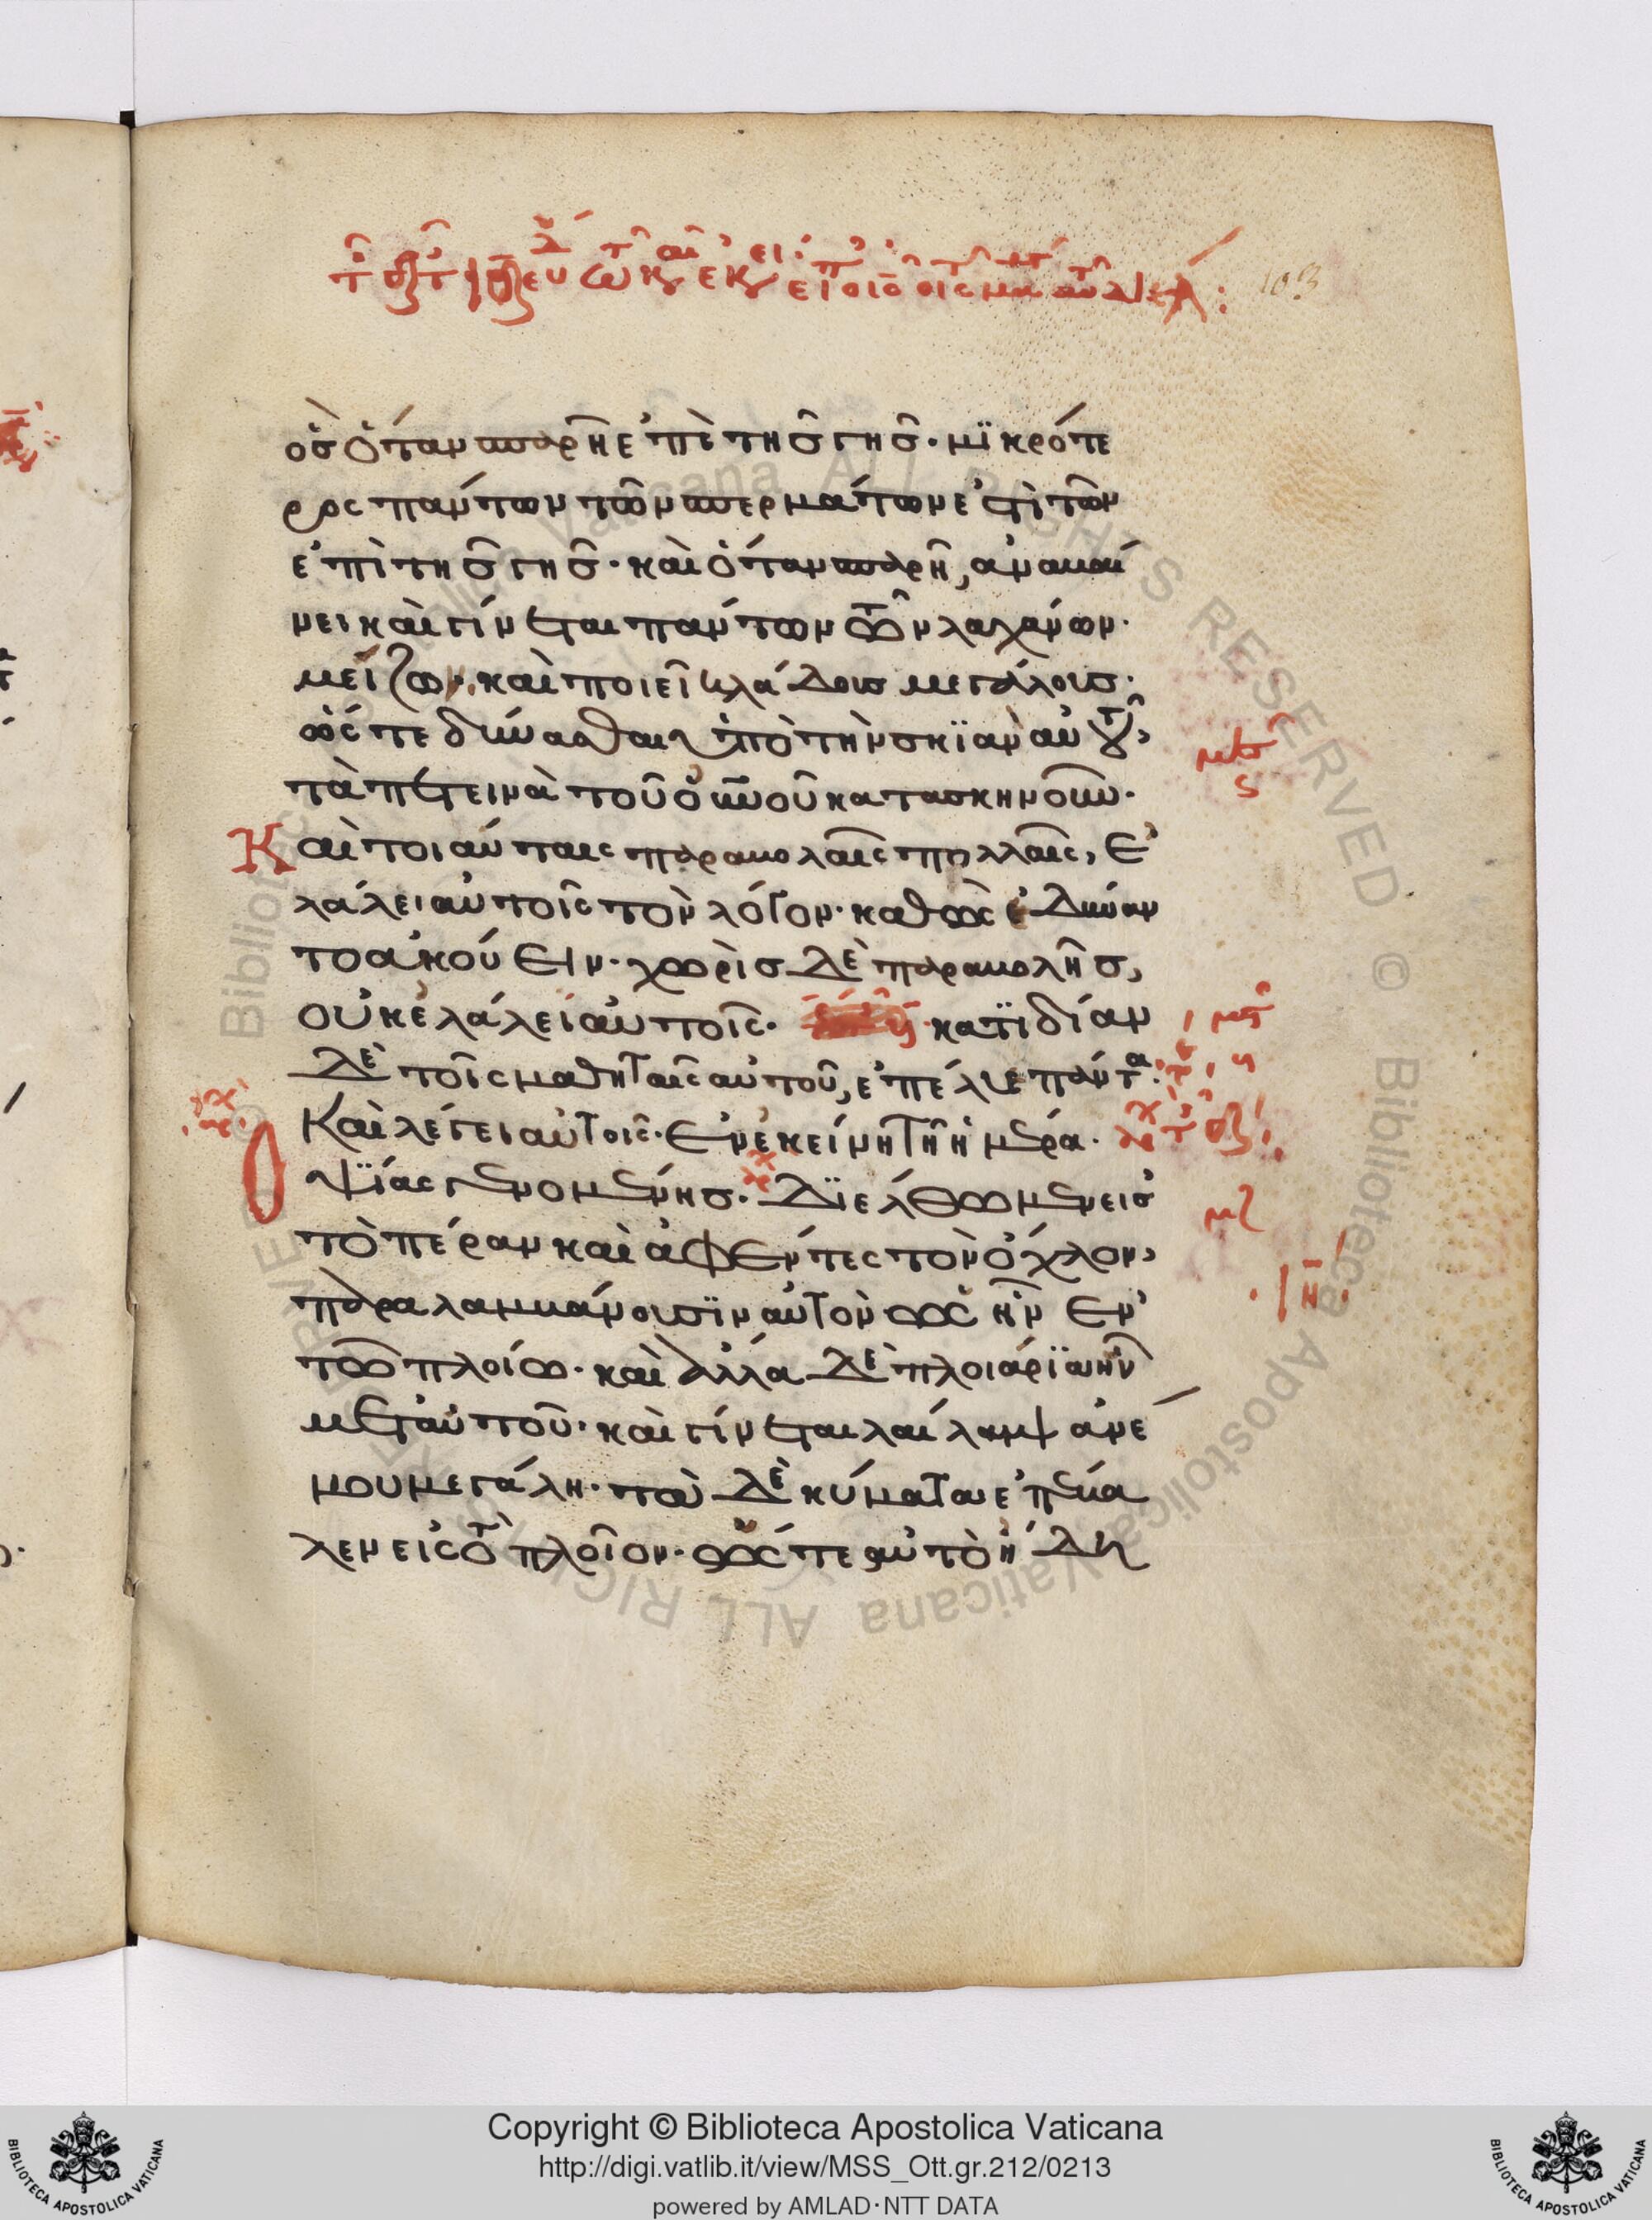 103
ὃς ὅταν σπαρῆ ἐπὶ τῆς γῆς· μϊκρότε
ρος πάντων τῶν σπερμάτων ἐστὶ τῶν
ἐπὶ τῆς γῆς· καὶ ὅταν σπαρῆ, ἀναβαί
νει καὶ γίνεται πάντων τῶν λαχάνων·
μείζων· καὶ ποιεῖ κλάδους μεγάλους·
ὥστε δύνασθαι ὑπὸ τὴν σκϊὰν αὐτοῦ,
τὰ πετεινὰ τοῦ οὐνοῦ κατασκηνοῦν·
Καὶ τοιαύταις παραβολαῖς πολλαῖς, ἐ
λάλει αὐτοῖς τὸν λόγον· καθὼς ἐδύναν
το ἀκούειν· χωρὶς δὲ παραβολῆς,
οὐκ ἐλάλει αὐτοῖς· κατϊδίαν
δὲ τοῖς μαθηταῖς αὐτοῦ, ἐπέλυε πάντα·
Καὶ λέγει αὐτοῖς· ἐν ἐκείνη τῆ ἡμέρα·
ὀψϊάς γενομένης· Δϊέλθωμεν εἰς
τὸ πέραν καὶ ἀφέντες τὸν ὄχλον,
παραλαμβάνουσϊν αὐτὸν ὡς ἦν ἐν
τῶ πλοίω· καὶ ἄλλα δὲ πλοιάρϊα ἦν
μετ αὐτοῦ· καὶ γίνεται λαίλαψ ἀνέ
μου μεγάλη· τὰ δὲ κύματα ἐπέβα
λεν εἰς τὸ πλοῖον· ὥστε αὐτὸ ἤδη
Copyright © Biblioteca Apostolica Vaticana
http://digi.vatlib.it/view/MSS_Ott.gr.212/0213
powered by AMLAD·NTT DATA
BIBLIOTECA APOSTOLICA VATICANA
BIBLIOTECA APOSTOLICA VATICANA